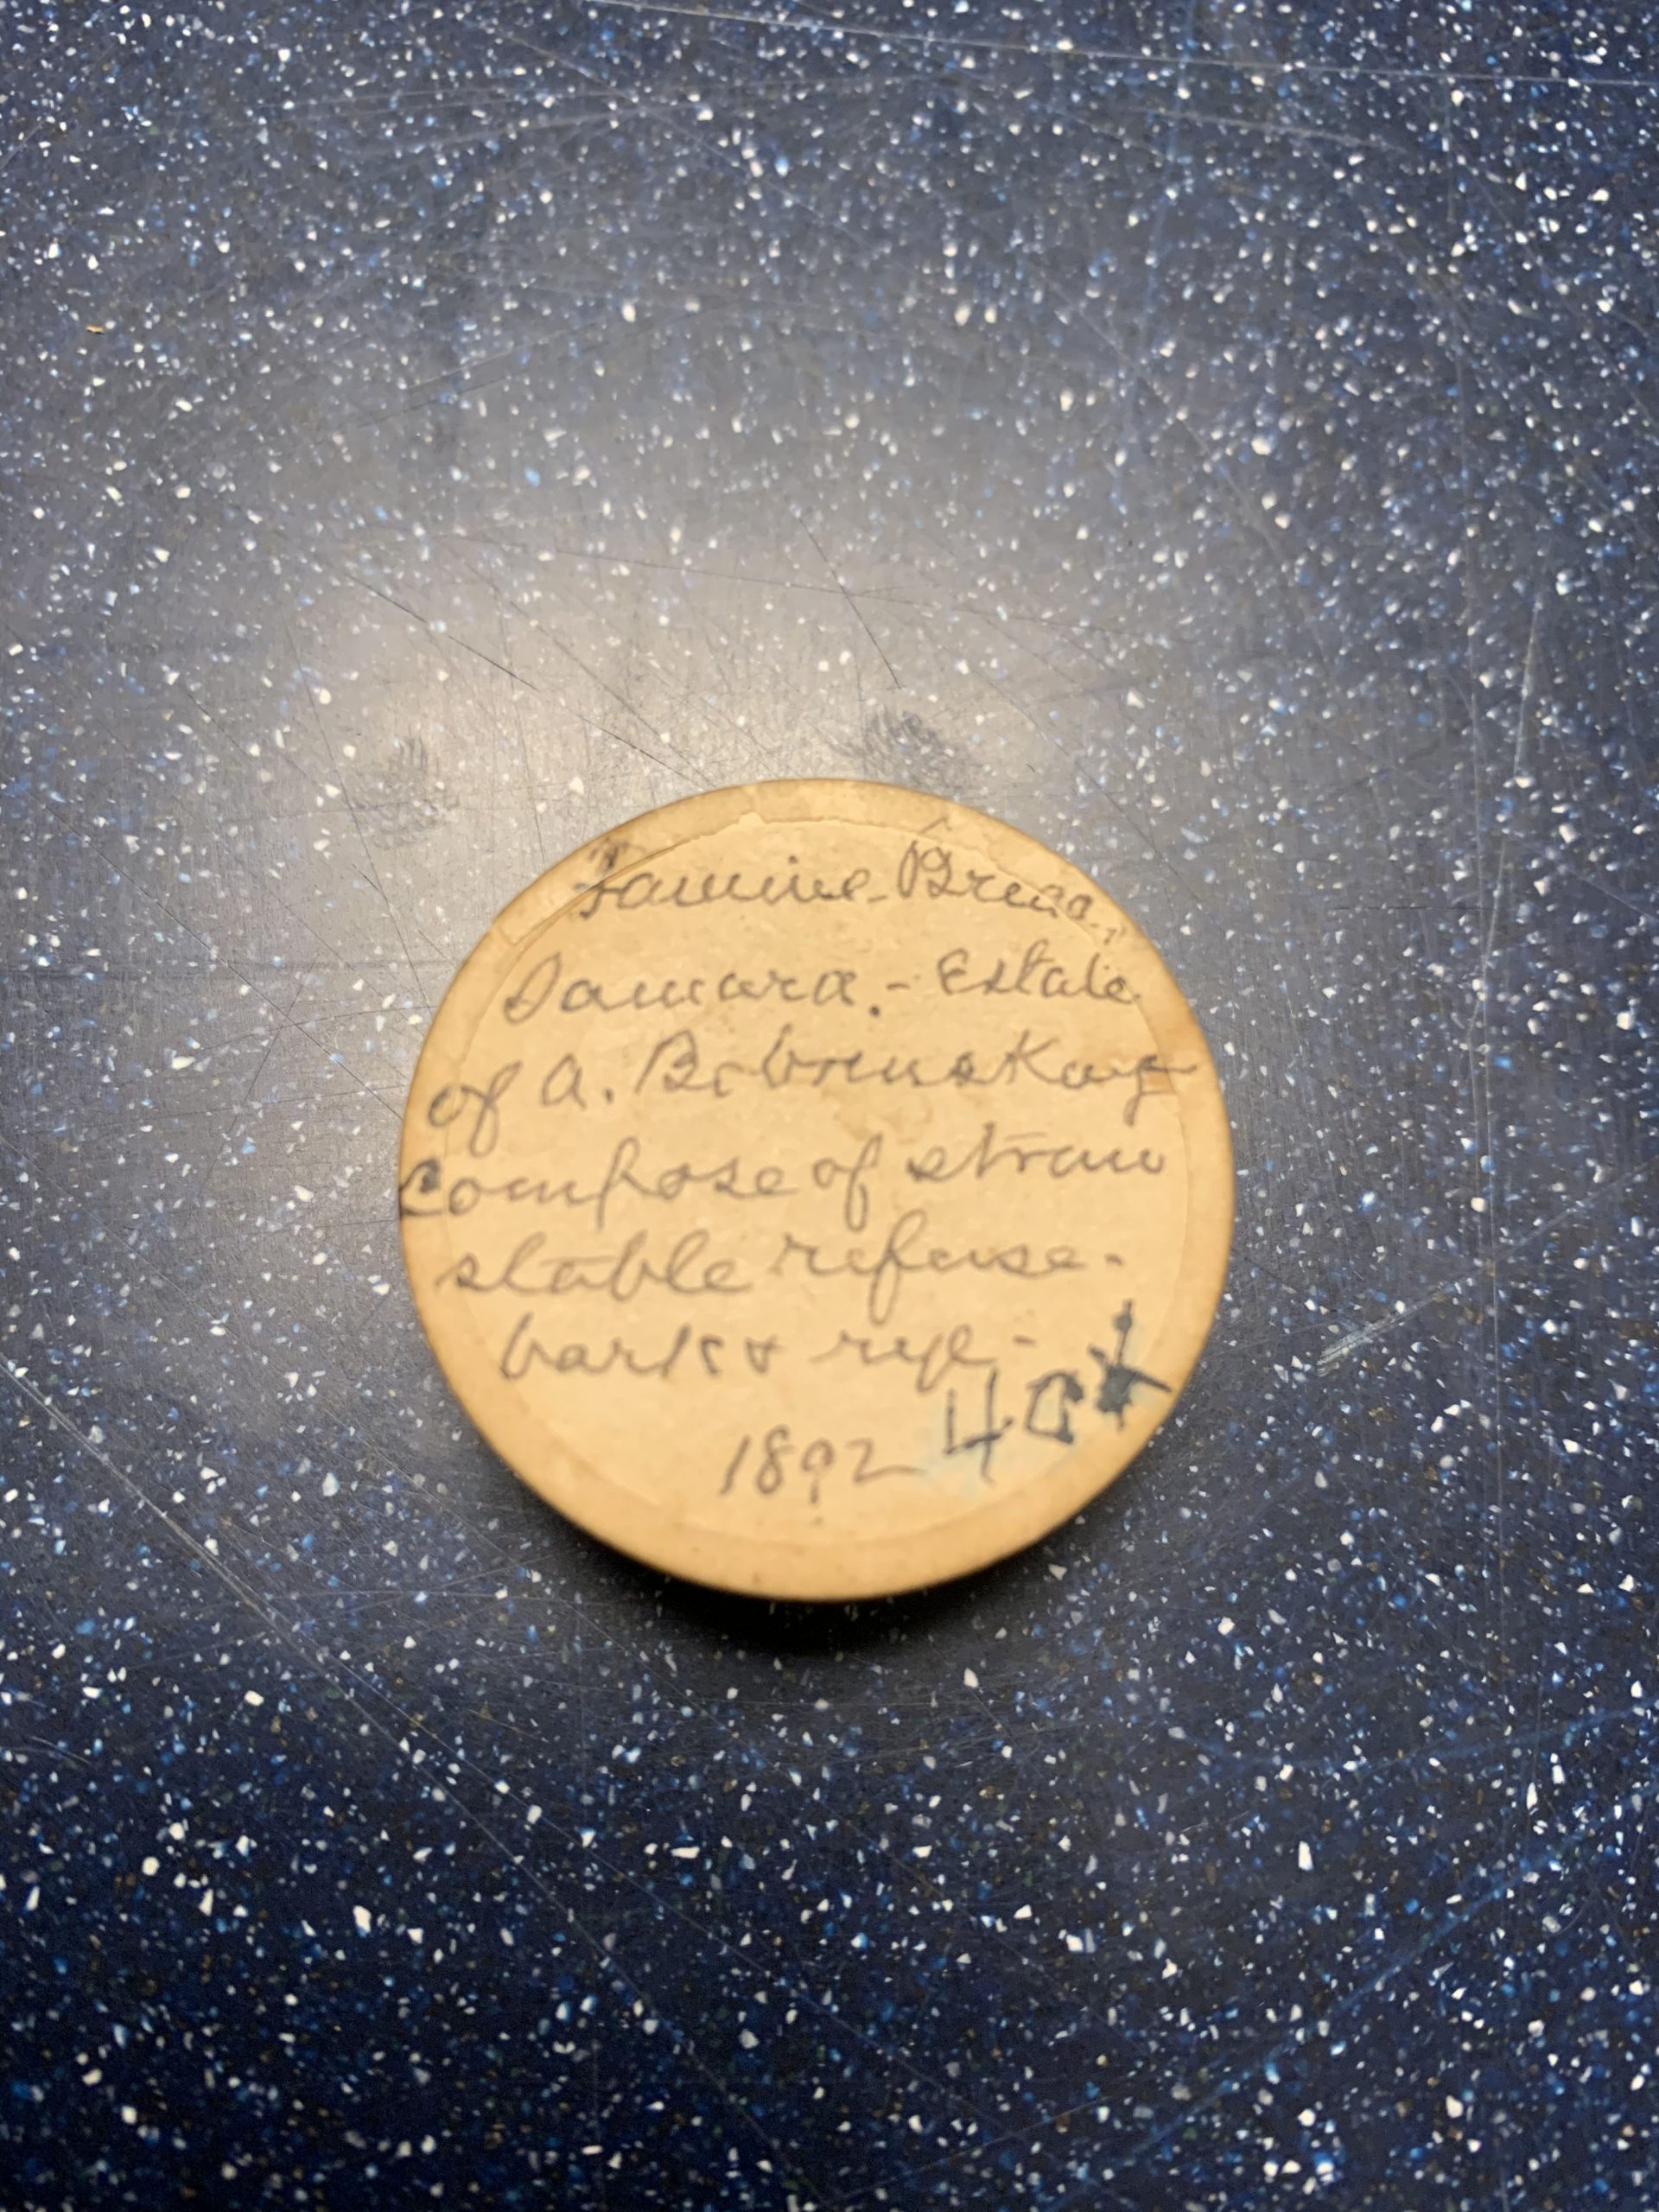 Famine-Bread.
Samara.- Estate
of A. Bobrinskoy
Compose of straw
stable refuse-
bark & rye-
1892